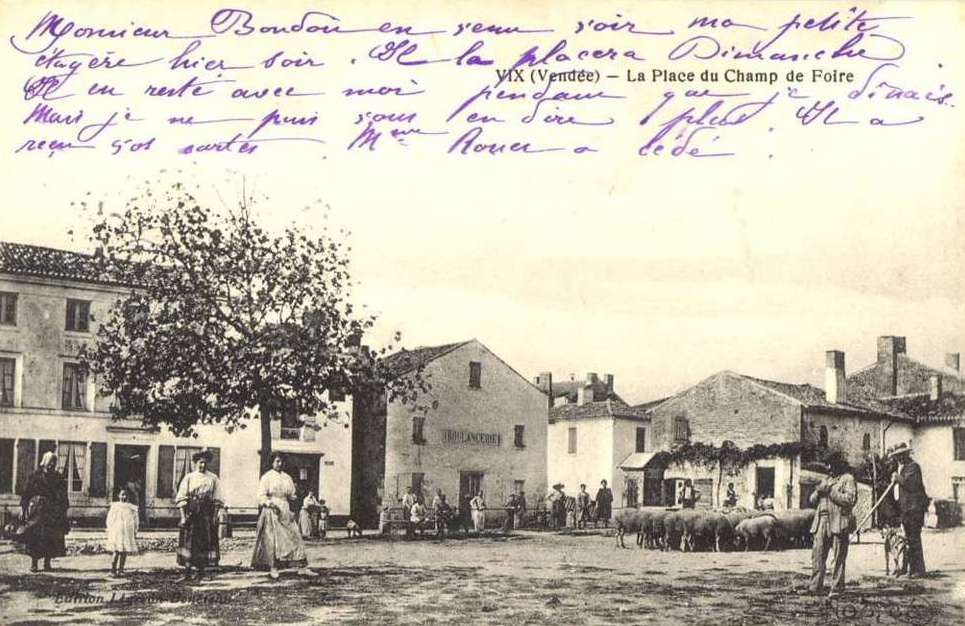 Monsieur Boudou en venu voir ma petite
étagère hier soir. Il la placera Dimanche
VIX (Vendée) — La Place du Champ de Foire
Il en resté avec moi pendant que je dînais.
Mais je ne puis vous en dire plus. Il a
reçu vos cartes. Mme a cédé.
BOULANGERIE
Edition